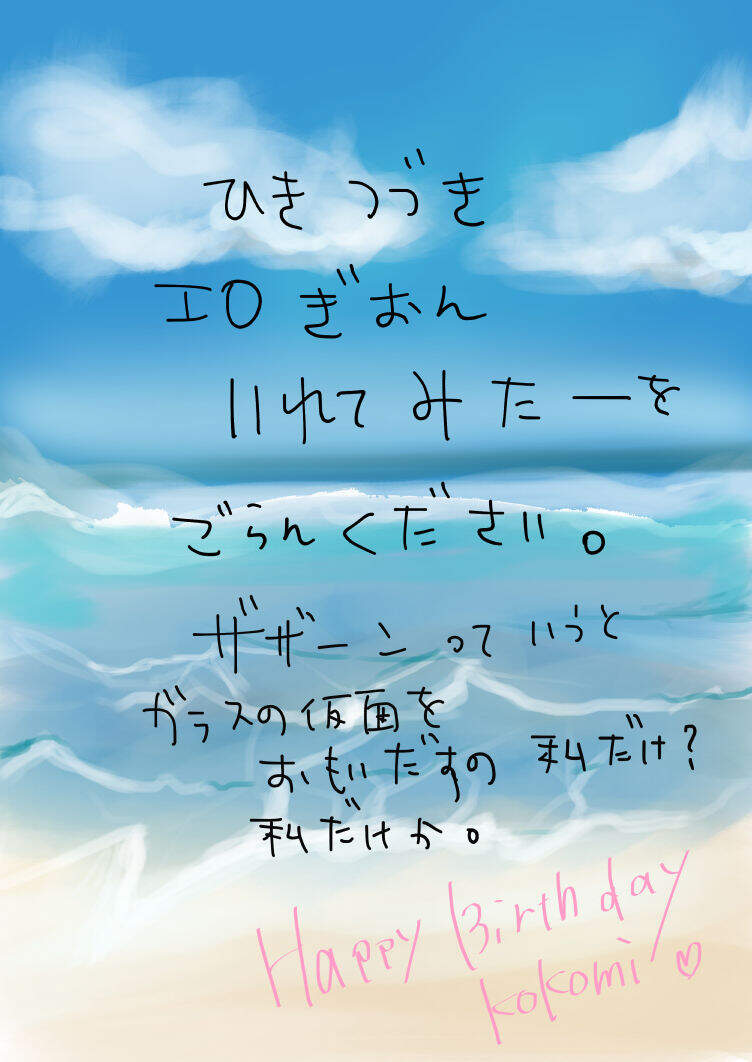 ひきつづき
エロぎおん
いれてみたーを
ごらんください。
ザザーンっていうと
ガラスの仮面を
おもいだすの私だけ?
私だけか。
Happy Birthday
kokomi♡